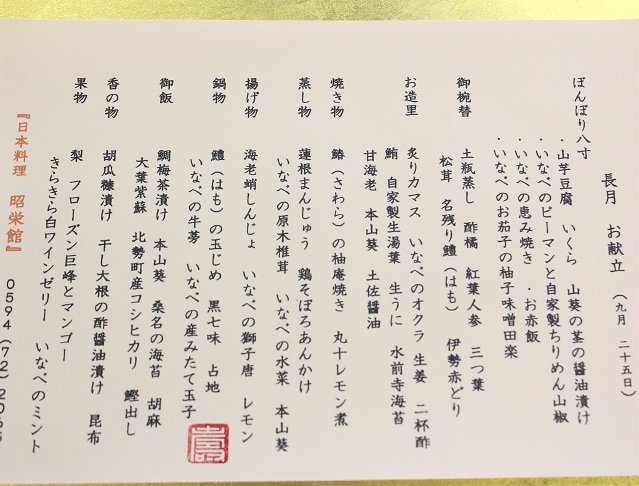 長月 お献立 (九月 二十五日)
ぼんぼり八寸
・山芋豆腐 いくら 山葵の茎の醤油漬け
・いなべのピーマンと自家製ちりめん山椒
・いなべの恵み焼き ・お赤飯
・いなべのお茄子の柚子味噌田楽
御椀替 土瓶蒸し 酢橘 紅葉人参 三つ葉
松茸 名残り鱧(はも) 伊勢赤どり
お造里 炙りカマス いなべのオクラ 生姜 二杯酢
鮪 自家製生湯葉 生うに 水前寺海苔
甘海老 本山葵 土佐醤油
焼き物 鰆(さわら)の柚庵焼き 丸十レモン煮
蒸し物 蓮根まんじゅう 鶏そぼろあんかけ
いなべの原木椎茸 いなべの水菜 本山葵
揚げ物 海老蛸しんじょ いなべの獅子唐 レモン
鍋物 鱧(はも)の玉じめ 黒七味 占地
いなべの牛蒡 いなべの産みたて玉子
御飯 鯛梅茶漬け 本山葵 桑名の海苔 胡麻
大葉紫蘇 北勢町産コシヒカリ 鰹出し
香の物 胡瓜糠漬け 干し大根の酢醤油漬け 昆布
果物 梨 フローズン巨峰とマンゴー
きらきら白ワインゼリー いなべのミント
『日本料理 昭栄館』 0594(72)2065
壽